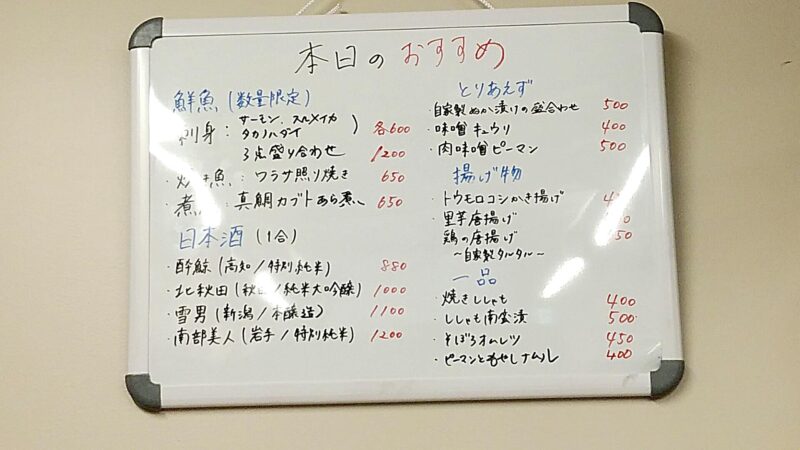 本日のおすすめ
鮮魚(数量限定)
刺身:サーモン、スルメイカ
タカノハダイ 各600
3点盛り合わせ 1200
・焼き魚:ワラサ照り焼き 650
・煮 :真鯛カブトあら煮 650
日本酒(1合)
・酔鯨(高知/特別純米) 880
・北秋田(秋田/純米大吟醸) 1000
・雪男(新潟/本醸造) 1100
・南部美人(岩手/特別純米) 1200
とりあえず
・自家製ぬか漬けの盛合わせ 500
・味噌キュウリ 400
・肉味噌ピーマン 500
揚げ物
・トウモロコシかき揚げ
・里芋唐揚げ
・鶏の唐揚げ
〜自家製タルタル〜
一品
・焼きししゃも 400
・ししゃも南蛮漬 500
・そぼろオムレツ 450
・ピーマンともやしナムル 400